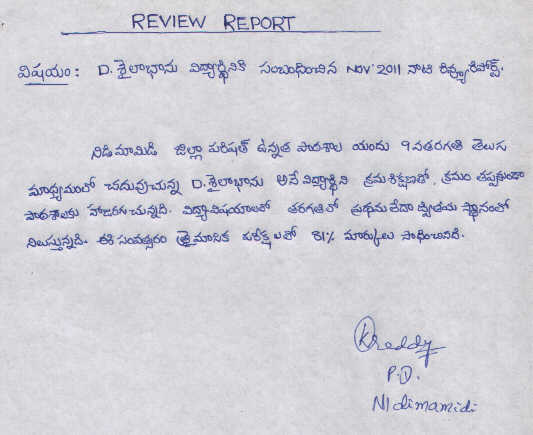 REVIEW REPORT
విషయం : D. శైలాభాను విద్యార్థినికి సంబంధించిన NOV' 2011 నాటి రివ్యూరిపోర్ట్.
నిడిమామిడి జిల్లా పరిషత్ ఉన్నత పాఠశాల యందు 9వతరగతి తెలుగు
మాధ్యమంలో చదువుచున్న D. శైలాభాను అనే విద్యార్థిని క్రమశిక్షణతో, క్రమం తప్పకుండా
పాఠశాలకు హాజరగుచున్నది. విద్యావిషయాలలో తరగతిలో ప్రథమ లేదా ద్వితీయ స్థానంలో
నిలుస్తున్నది. ఈ సంవత్సరం త్రైమాసిక పరీక్షలలో 81% మార్కులు సాధించినది.
KReddy
P.D.
Nidimamidi